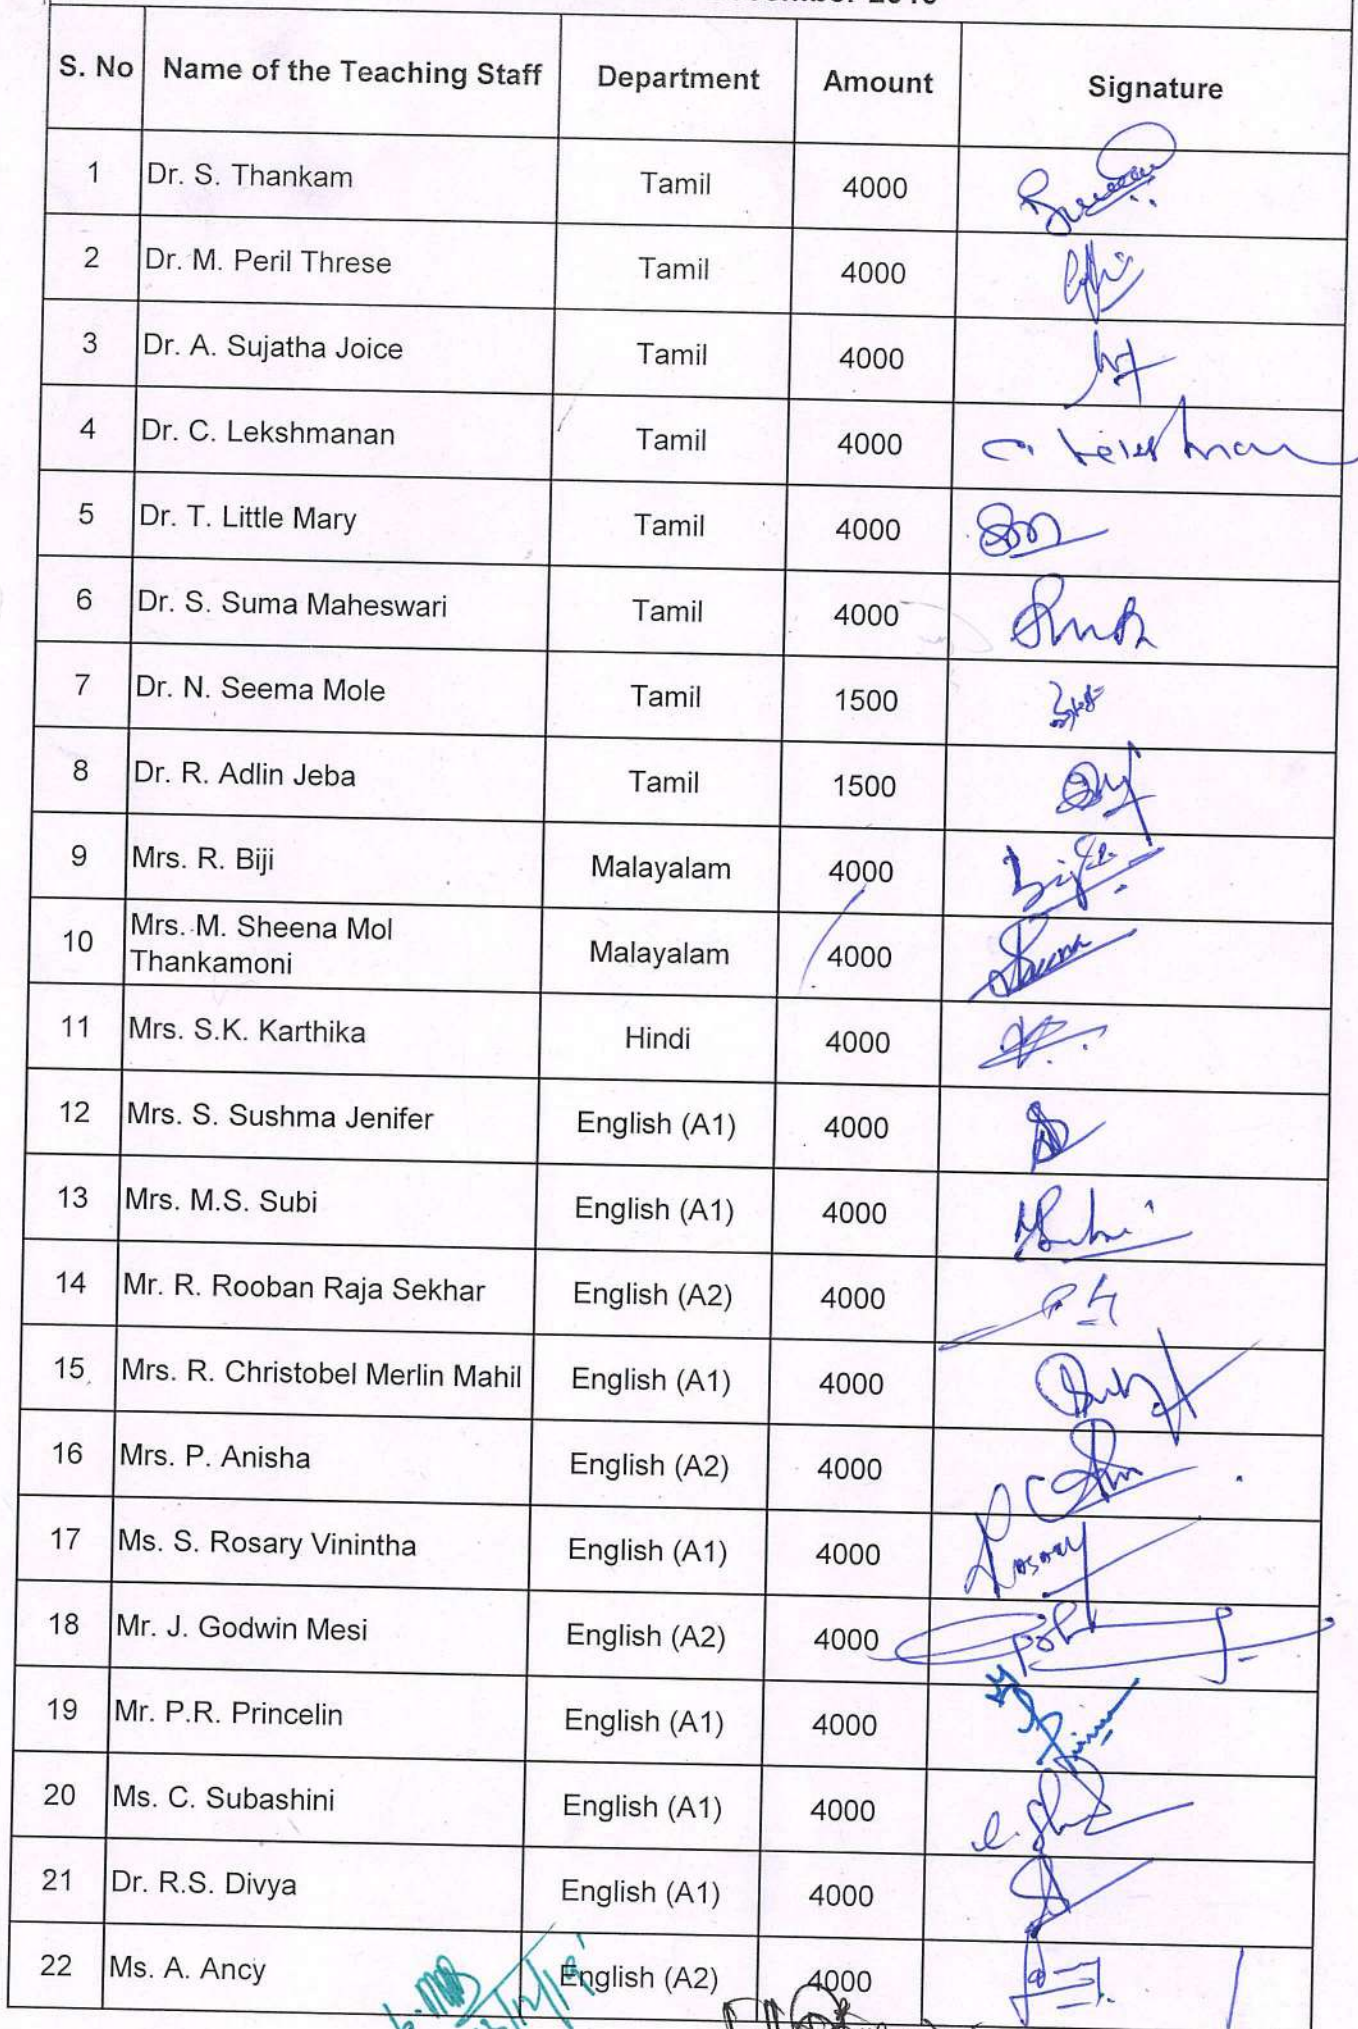 S. No Name of the Teaching Staff Department Amount Signature
1 Dr. S. Thankam Tamil 4000
2 Dr. M. Peril Threse Tamil 4000
3 Dr. A. Sujatha Joice Tamil 4000
4 Dr. C. Lekshmanan Tamil 4000
5 Dr. T. Little Mary Tamil 4000
6 Dr. S. Suma Maheswari Tamil 4000
7 Dr. N. Seema Mole Tamil 1500
8 Dr. R. Adlin Jeba Tamil 1500
9 Mrs. R. Biji Malayalam 4000
10 Mrs. M. Sheena Mol
Thankamoni Malayalam 4000
11 Mrs. S.K. Karthika Hindi 4000
12 Mrs. S. Sushma Jenifer English (A1) 4000
13 Mrs. M.S. Subi English (A1) 4000
14 Mr. R. Rooban Raja Sekhar English (A2) 4000
15 Mrs. R. Christobel Merlin Mahil English (A1) 4000
16 Mrs. P. Anisha English (A2) 4000
17 Ms. S. Rosary Vinintha English (A1) 4000
18 Mr. J. Godwin Mesi English (A2) 4000
19 Mr. P.R. Princelin English (A1) 4000
20 Ms. C. Subashini English (A1) 4000
21 Dr. R.S. Divya English (A1) 4000
22 Ms. A. Ancy English (A2) 4000